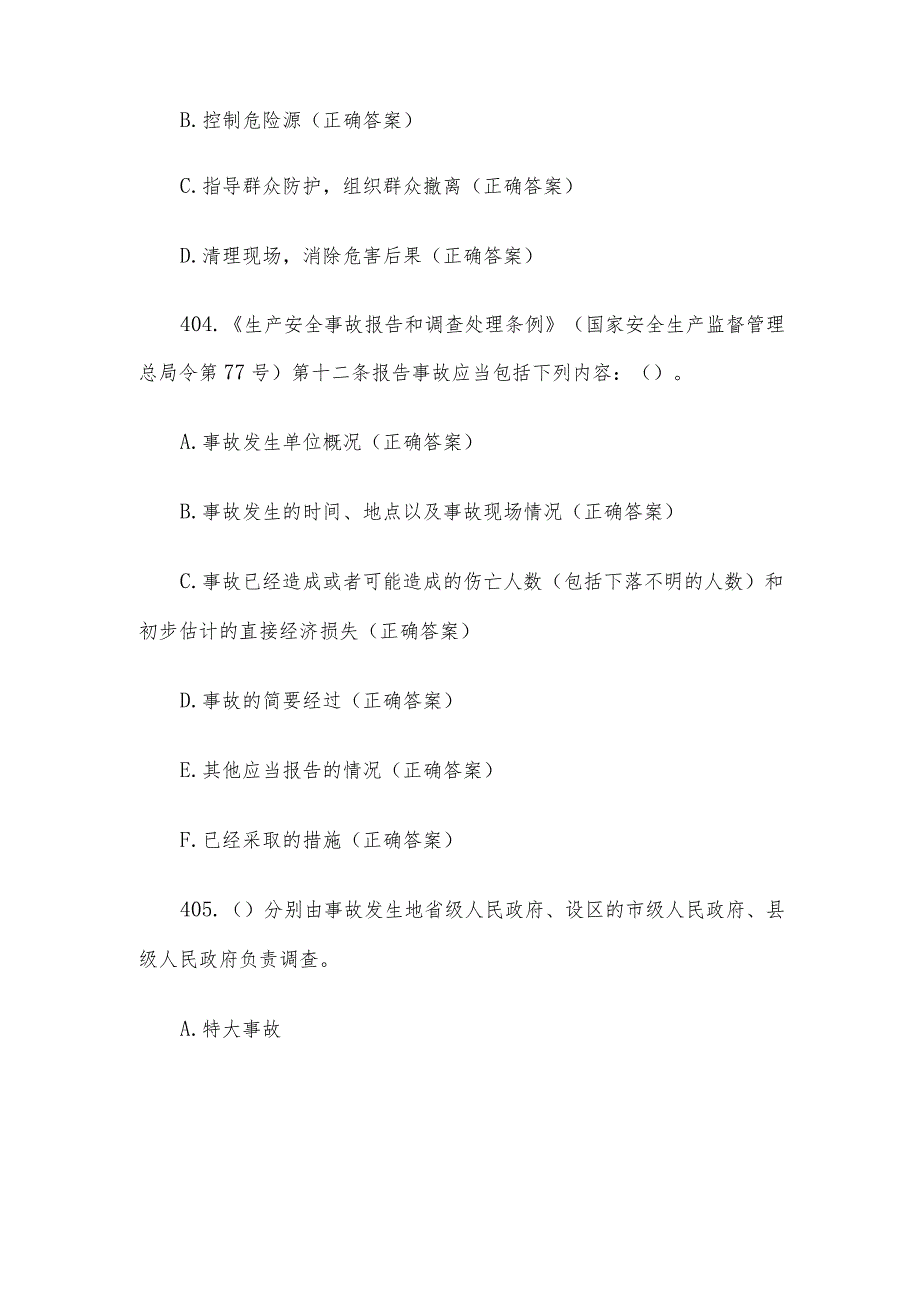 B.控制危险源（正确答案）
C.指导群众防护，组织群众撤离（正确答案）
D.清理现场，消除危害后果（正确答案）
404.《生产安全事故报告和调查处理条例》（国家安全生产监督管理
总局令第 77 号）第十二条报告事故应当包括下列内容：（）。
A.事故发生单位概况（正确答案）
B.事故发生的时间、地点以及事故现场情况（正确答案）
C.事故已经造成或者可能造成的伤亡人数（包括下落不明的人数）和
初步估计的直接经济损失（正确答案）
D.事故的简要经过（正确答案）
E.其他应当报告的情况（正确答案）
F.已经采取的措施（正确答案）
405.（）分别由事故发生地省级人民政府、设区的市级人民政府、县
级人民政府负责调查。
A.特大事故